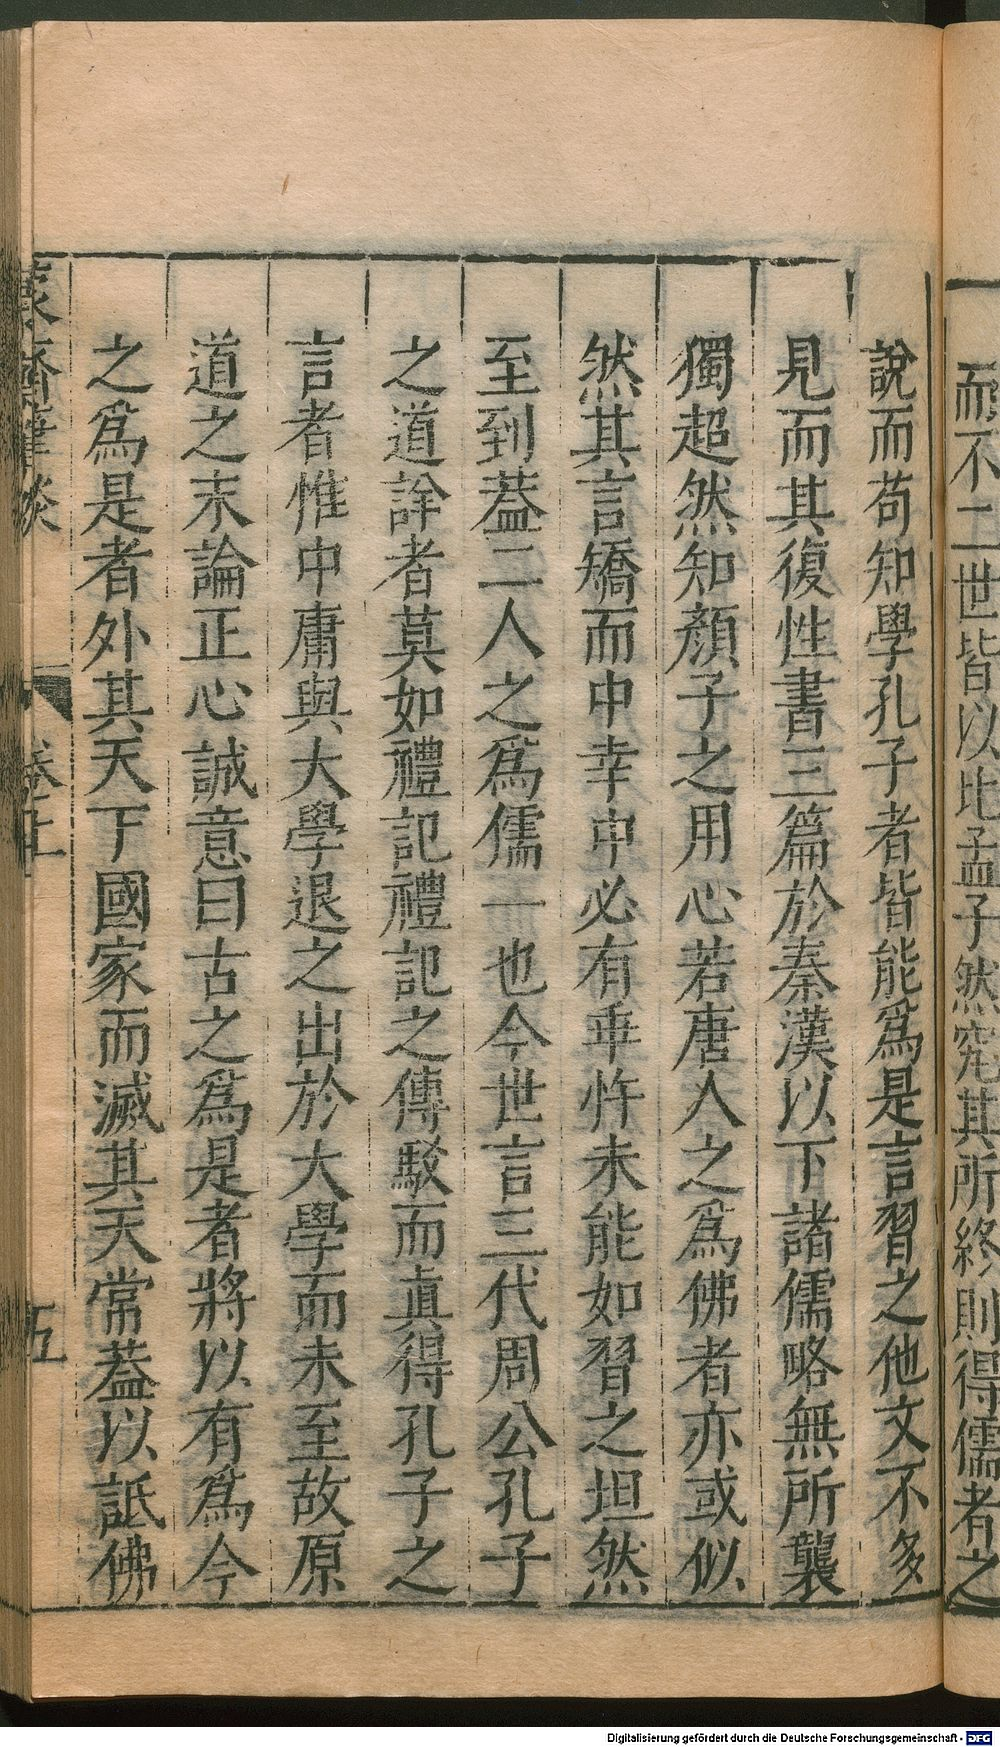 而不二世皆以比孟子然究其所終則得儒者之
說而苟知學孔子者皆能爲是言習之他文不多
見而其復性書三篇於秦漢以下諸儒略無所襲
獨超然知顏子之用心若唐人之爲佛者亦或似
然其言矯而中幸中必有乖忤未能如習之坦然
至到蓋二人之爲儒一也今世言三代周公孔子
之道詳者莫如禮記禮記之傳駁而眞得孔子之
言者惟中庸與大學退之出於大學而未至故原
道之末論正心誠意曰古之爲是者將以有爲今
之爲是者外其天下國家而滅其天常蓋以詆佛
蒙齋筆談
卷上
五
Digitalisierung gefördert durch die Deutsche Forschungsgemeinschaft - DFG